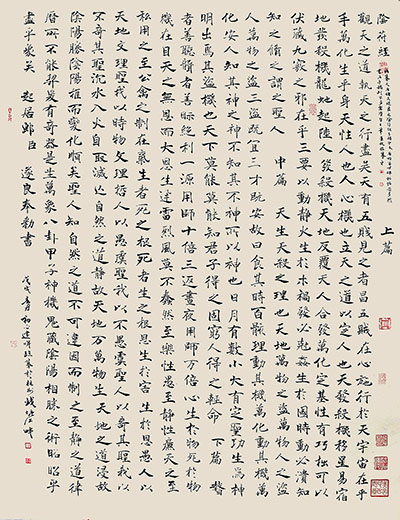 陰符經
上篇
觀天之道執天之行盡矣天有五賊見之者昌五賊在心施行於天宇宙在乎
手萬化生乎身天性人也人心機也立天之道以定人也天發殺機移星易宿
地發殺機龍蛇起陸人發殺機天地反覆天人合發萬化定基性有巧拙可以
伏藏九竅之邪在乎三要可以動靜火生於木禍發必剋姦生於國時動必潰知
之脩之謂之聖人 中篇 天生天殺之理也天地萬物之盜萬物人之盜
人萬物之盜三盜既宜三才既安故曰食其時百骸理動其機萬化動其機萬
化安人知其神之神不知其不神所以神也日月有數小大有定聖功生焉神
明出焉其盜機也天下莫能見莫能知君子得之固窮小人得之輕命 下篇 瞽
者善聽聾者善視絕利一源用師十倍三返晝夜用師萬倍心生於物死於物
機在目天之無恩而大恩生迅雷烈風莫不蠢然至樂性愚至靜性廉天之至
私用之至公禽之制在氣生者死之根死者生之根恩生於害害生於恩愚人以
天地文理聖我以時物文理哲人以愚虞聖我以不愚虞聖人以奇其聖我以
不奇其聖沉水入火自取滅亡自然之道靜故天地萬物生天地之道浸故
陰陽勝陰陽推而變化順矣聖人知自然之道不可違因而制之至靜之道律
曆所不能契爰有奇器是生萬象八卦甲子神機鬼藏陰陽相勝之術昭昭乎
盡乎象矣 起居郎臣 遂良奉勅書